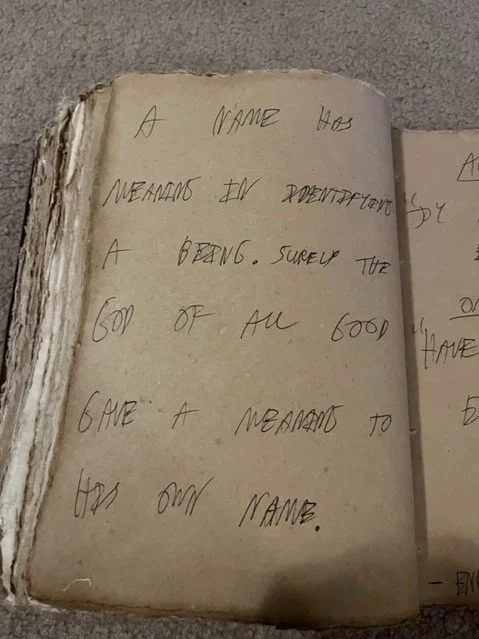 A NAME HAS
MEANING IN IDENTIFYING
A BEING. SURELY THE
GOD OF ALL GOOD
GAVE A MEANING TO
HIS OWN NAME.
"HAVE